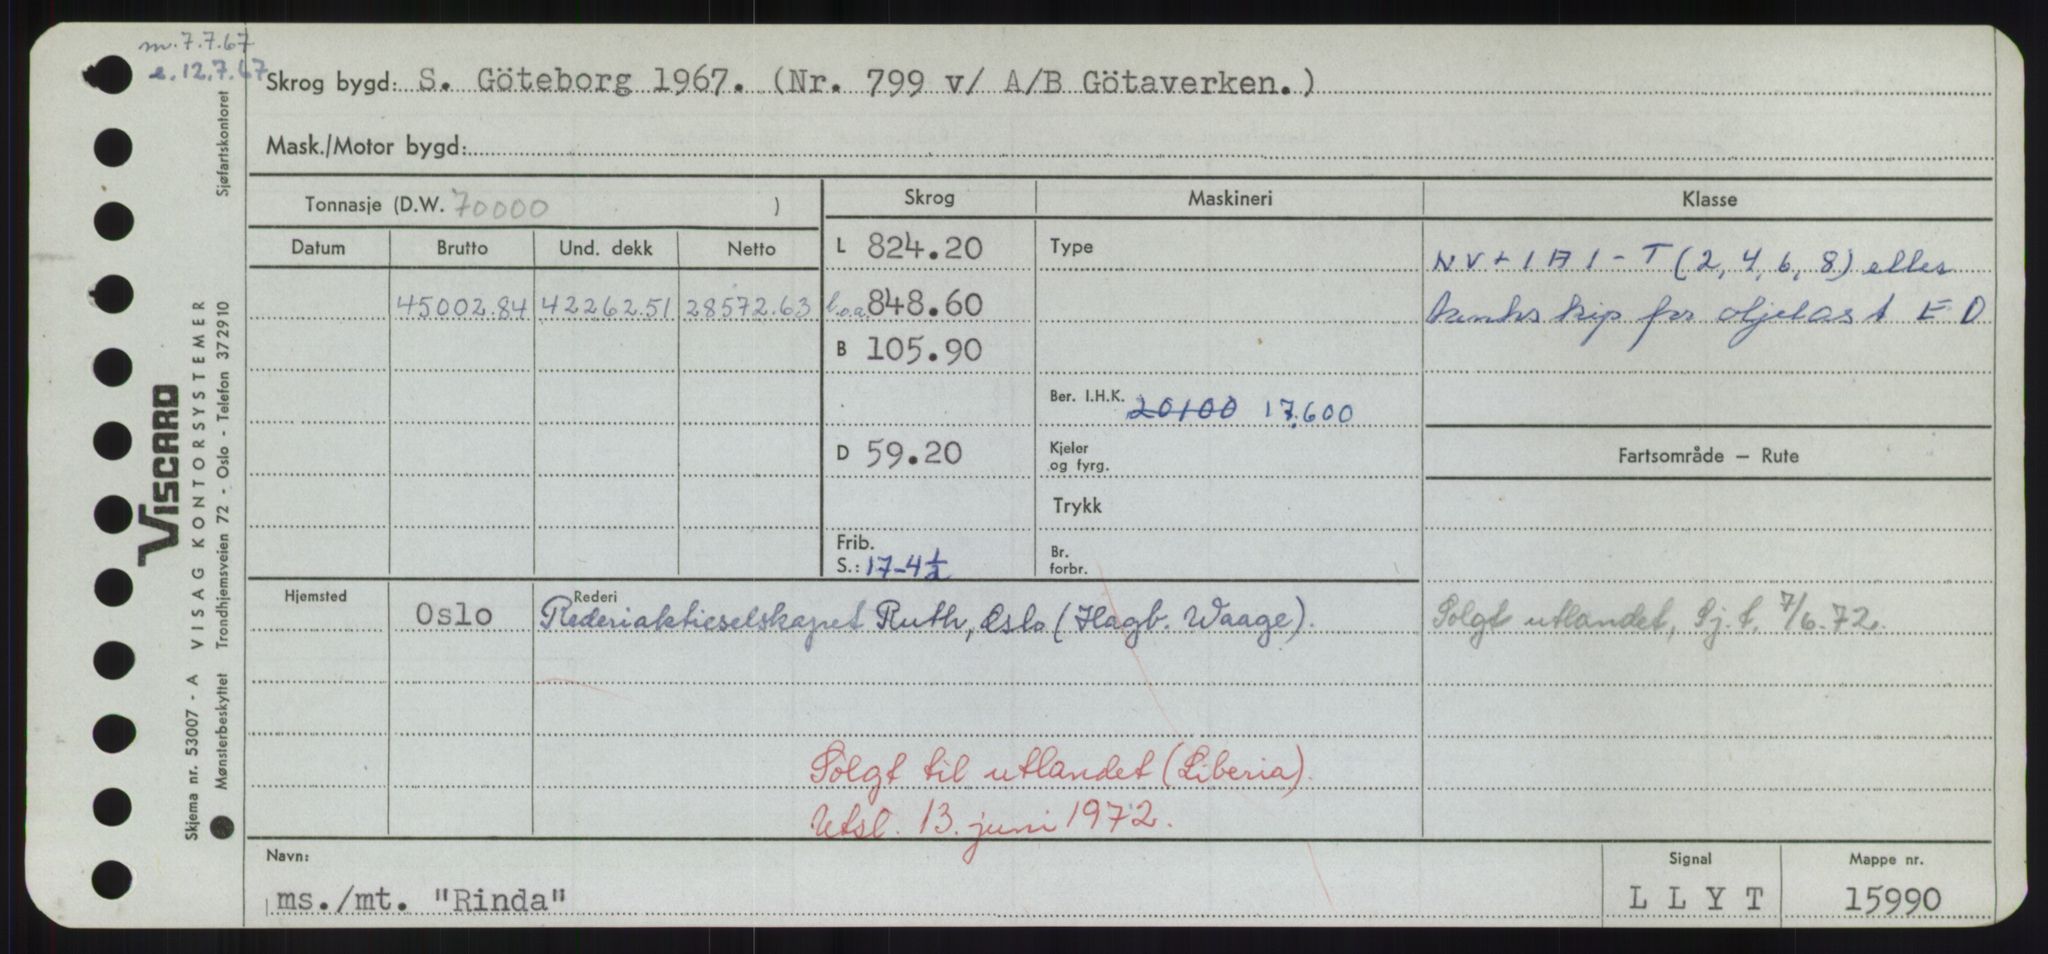 m. 7.7.67
e. 12.7.67
Skrog bygd: S. Göteborg 1967. (Nr. 799 v/ A/B Götaverken.)
Mask./Motor bygd:
Tonnasje (D.W. 70000 )
Skrog Maskineri Klasse
Datum Brutto Und. dekk Netto
L 824.20 Type
NV + 1 A 1 - T (2, 4, 6, 8) eller
45002.84 42262.51 28572.63 l.o.a. 848.60
Tankskip for oljelast E D
B 105.90
Ber. I.H.K. 20100 17.600
D 59.20 Kjeler
og fyrg.
Fartsområde — Rute
Trykk
Frib.
S.: 17-4½
Br.
forbr.
Hjemsted Oslo Rederi
Rederiaktieselskapet Ruth, Oslo (Hagb. Waage).
Solgt utlandet, Sj.t. 7/6.72.
Solgt til utlandet (Liberia).
Utsl. 13. juni 1972.
Navn: Signal Mappe nr.
ms./mt. "Rinda" L L Y T 15990
Skjema nr. 53007 - A VISAG KONTORSYSTEMER Sjøfartskontoret
Mønsterbeskyttet Trondhjemsveien 72 - Oslo - Telefon 372910
VISCARD